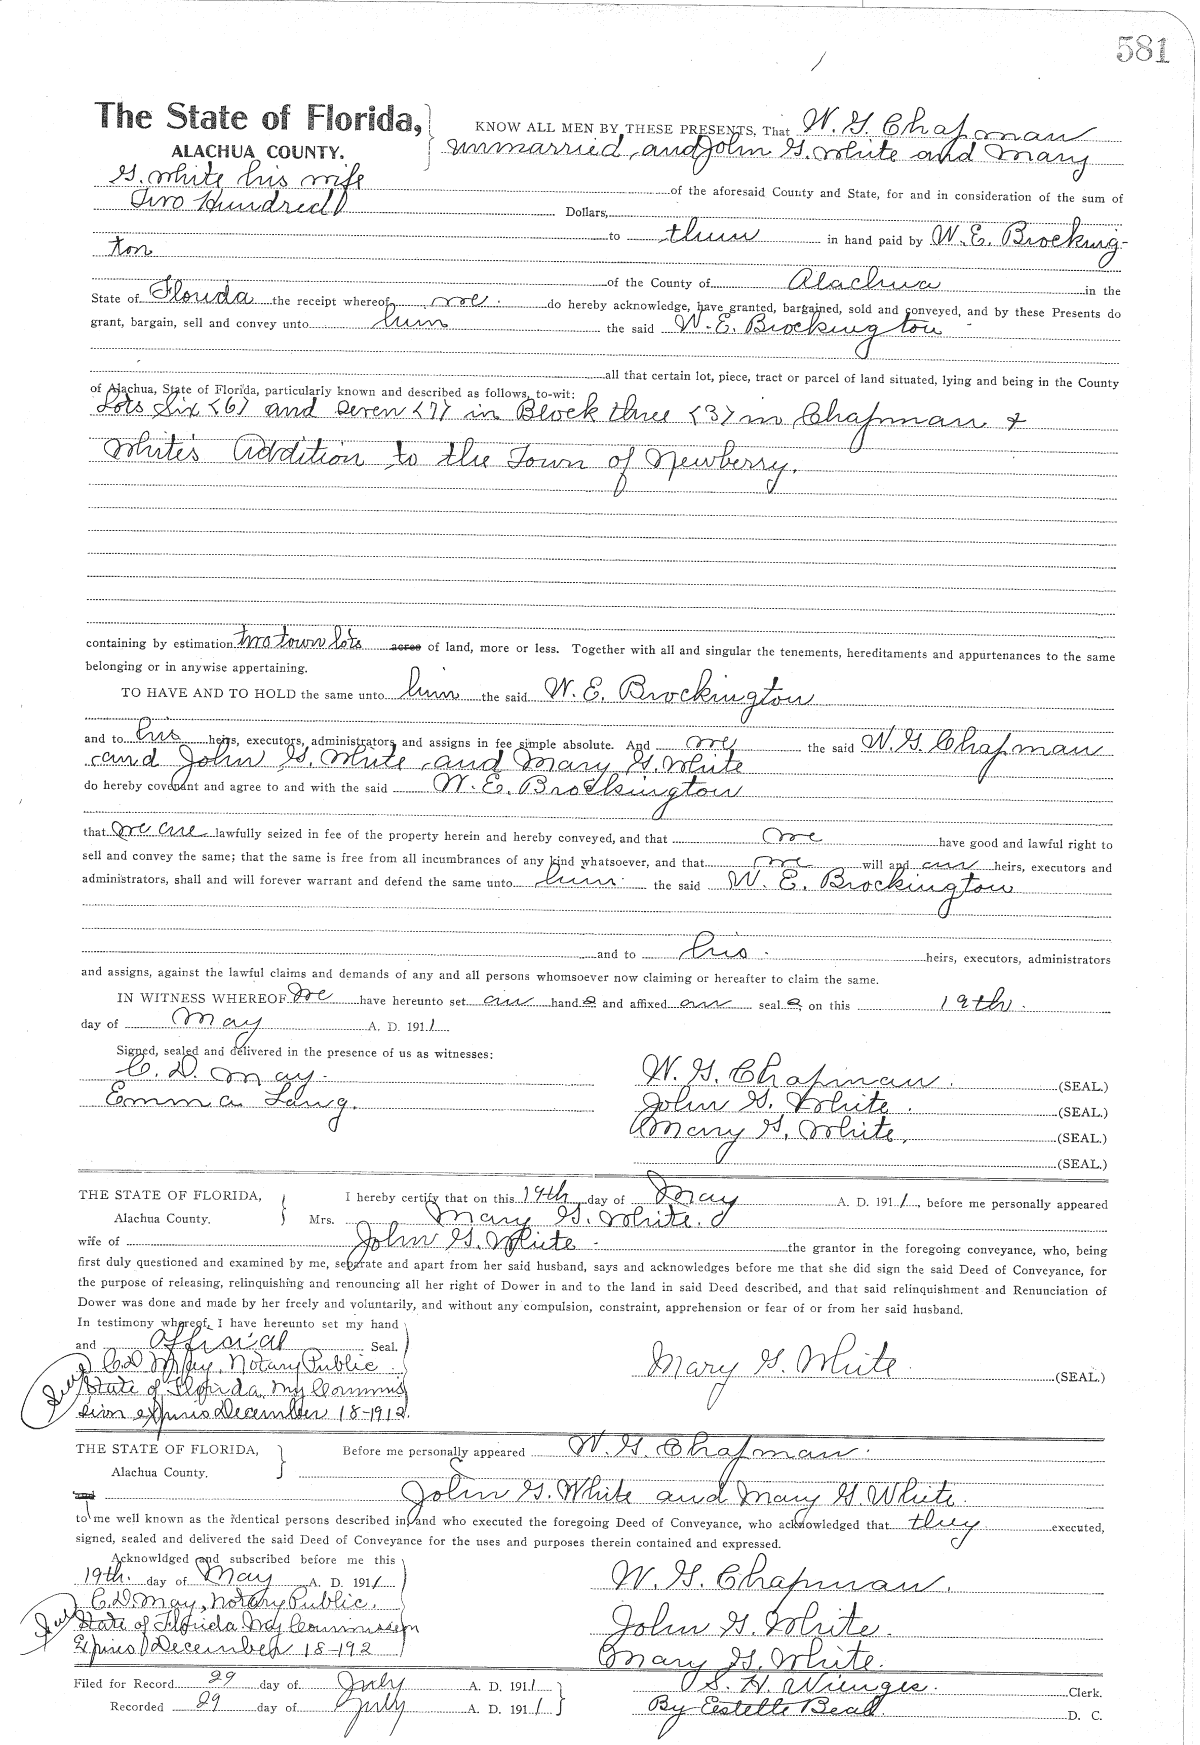 581
The State of Florida, KNOW ALL MEN BY THESE PRESENTS, That W. G. Chapman
ALACHUA COUNTY. unmarried, and John G. White and Mary
G. White his wife of the aforesaid County and State, for and in consideration of the sum of
Two Hundred Dollars,
to them in hand paid by W. E. Brocking-
ton
of the County of Alachua in the
State of Florida the receipt whereof we do hereby acknowledge, have granted, bargained, sold and conveyed, and by these Presents do
grant, bargain, sell and convey unto him the said W. E. Brockington
all that certain lot, piece, tract or parcel of land situated, lying and being in the County
of Alachua, State of Florida, particularly known and described as follows, to-wit:
Lots Six (6) and Seven (7) in Block three (3) in Chapman &
White's Addition to the Town of Newberry.
containing by estimation two town lots acres of land, more or less. Together with all and singular the tenements, hereditaments and appurtenances to the same
belonging or in anywise appertaining.
TO HAVE AND TO HOLD the same unto him the said W. E. Brockington
and to his heirs, executors, administrators and assigns in fee simple absolute. And we the said W. G. Chapman
and John G. White and Mary G. White
do hereby covenant and agree to and with the said W. E. Brockington
that we are lawfully seized in fee of the property herein and hereby conveyed, and that we have good and lawful right to
sell and convey the same; that the same is free from all incumbrances of any kind whatsoever, and that we will and our heirs, executors and
administrators, shall and will forever warrant and defend the same unto him the said W. E. Brockington
and to his heirs, executors, administrators
and assigns, against the lawful claims and demands of any and all persons whomsoever now claiming or hereafter to claim the same.
IN WITNESS WHEREOF We have hereunto set our hand s and affixed our seal s on this 19th
day of May A. D. 1911
Signed, sealed and delivered in the presence of us as witnesses:
C. D. May. W. G. Chapman. (SEAL.)
Emma Lang. John G. White. (SEAL.)
Mary G. White. (SEAL.)
(SEAL.)
THE STATE OF FLORIDA, I hereby certify that on this 19th day of May A. D. 1911, before me personally appeared
Alachua County. Mrs. Mary G. White.
wife of John G. White the grantor in the foregoing conveyance, who, being
first duly questioned and examined by me, separate and apart from her said husband, says and acknowledges before me that she did sign the said Deed of Conveyance, for
the purpose of releasing, relinquishing and renouncing all her right of Dower in and to the land in said Deed described, and that said relinquishment and Renunciation of
Dower was done and made by her freely and voluntarily, and without any compulsion, constraint, apprehension or fear of or from her said husband.
In testimony whereof, I have hereunto set my hand
and official Seal.
C. D. May, Notary Public Mary G. White (SEAL.)
State of Florida. My Commis
sion expires December 18-1912.
THE STATE OF FLORIDA, Before me personally appeared W. G. Chapman
Alachua County.
and John G. White and Mary G. White.
to me well known as the identical persons described in, and who executed the foregoing Deed of Conveyance, who acknowledged that they executed,
signed, sealed and delivered the said Deed of Conveyance for the uses and purposes therein contained and expressed.
Acknowldged and subscribed before me this
19th. day of May A. D. 1911 W. G. Chapman.
C. D. May, Notary Public. John G. White.
State of Florida My Commission
Expires December 18-192 Mary G. White.
Filed for Record 29 day of July A. D. 1911 S. H. Wienges. Clerk.
Recorded 29 day of July A. D. 1911 By Estelle Beal D. C.